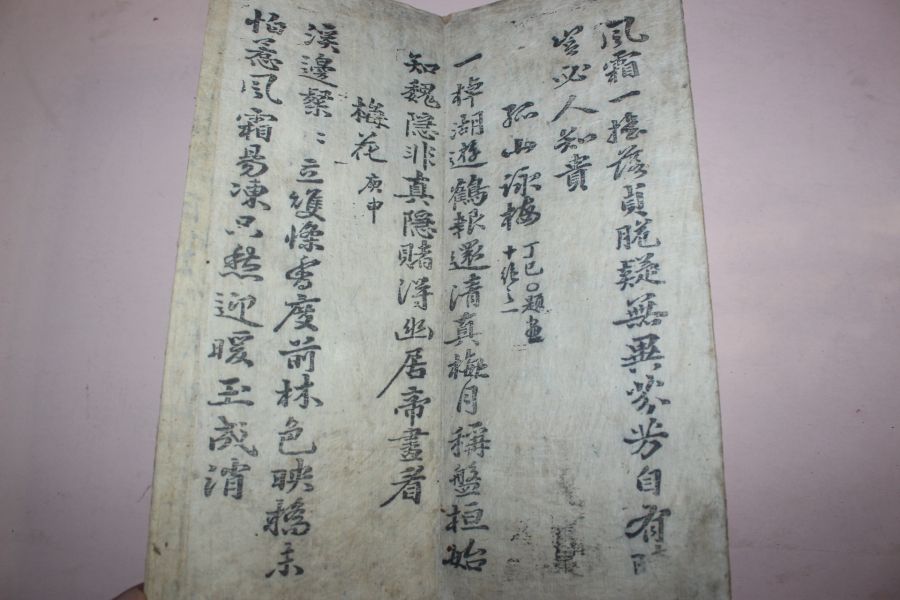 風霜一搖落貞脆疑無異芬芳自有時
豈必人知貴
孤山詠梅 丁巳○題畫
十絶之一
一棹湖遊鶴報還清真梅月稱盤桓始
知魏隐非真隐賭得幽居帝畫看
梅花 庚申
溪邊粲〻立雙條香度前林色映橋未
怕惹風霜易凍只愁迎暖玉成消